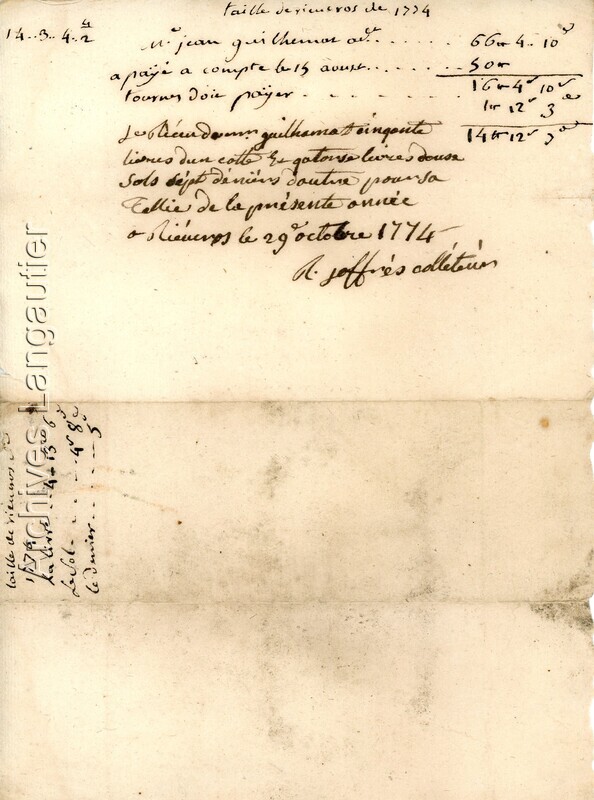 taille de rieucros de 1774
14..3..4..4/2
Mr jean guilhemat adt..... 66tt 4s 10d
a payé a compte le 15 aoust...... 50tt
tournes doit payer - - - - - 16tt 4s 10d
1tt 12s 3d
14tt 12s 7d
Je Riéu de mr guilhamat cinqante
livres dun cotté Et qatorse livres douse
sols sépt déniérs dautre pour sa
Tallie de la présente année
a Riéucros le 29e octobre 1774
R. joffrés colléteur
taille de rieucros de
1774
la livre 4 - 13s 6d
Le Sol - - - . 4s 8d
le denier - . - - - 5
Archives Langautier